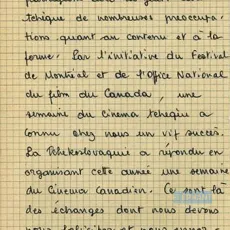 tchèque de nombreuses preoccupa-
tions quant au contenu et à la
forme. Par l'initiative du Festival
de Montréal et de l'Office National
du film du Canada, une
semaine du cinema tchèque a
connu chez nous un vif succès.
La Tchékoslovaquie a répondu en
organisant cette année une semaine
du Cinema Canadien. Ce sont là
des échanges dont nous devons